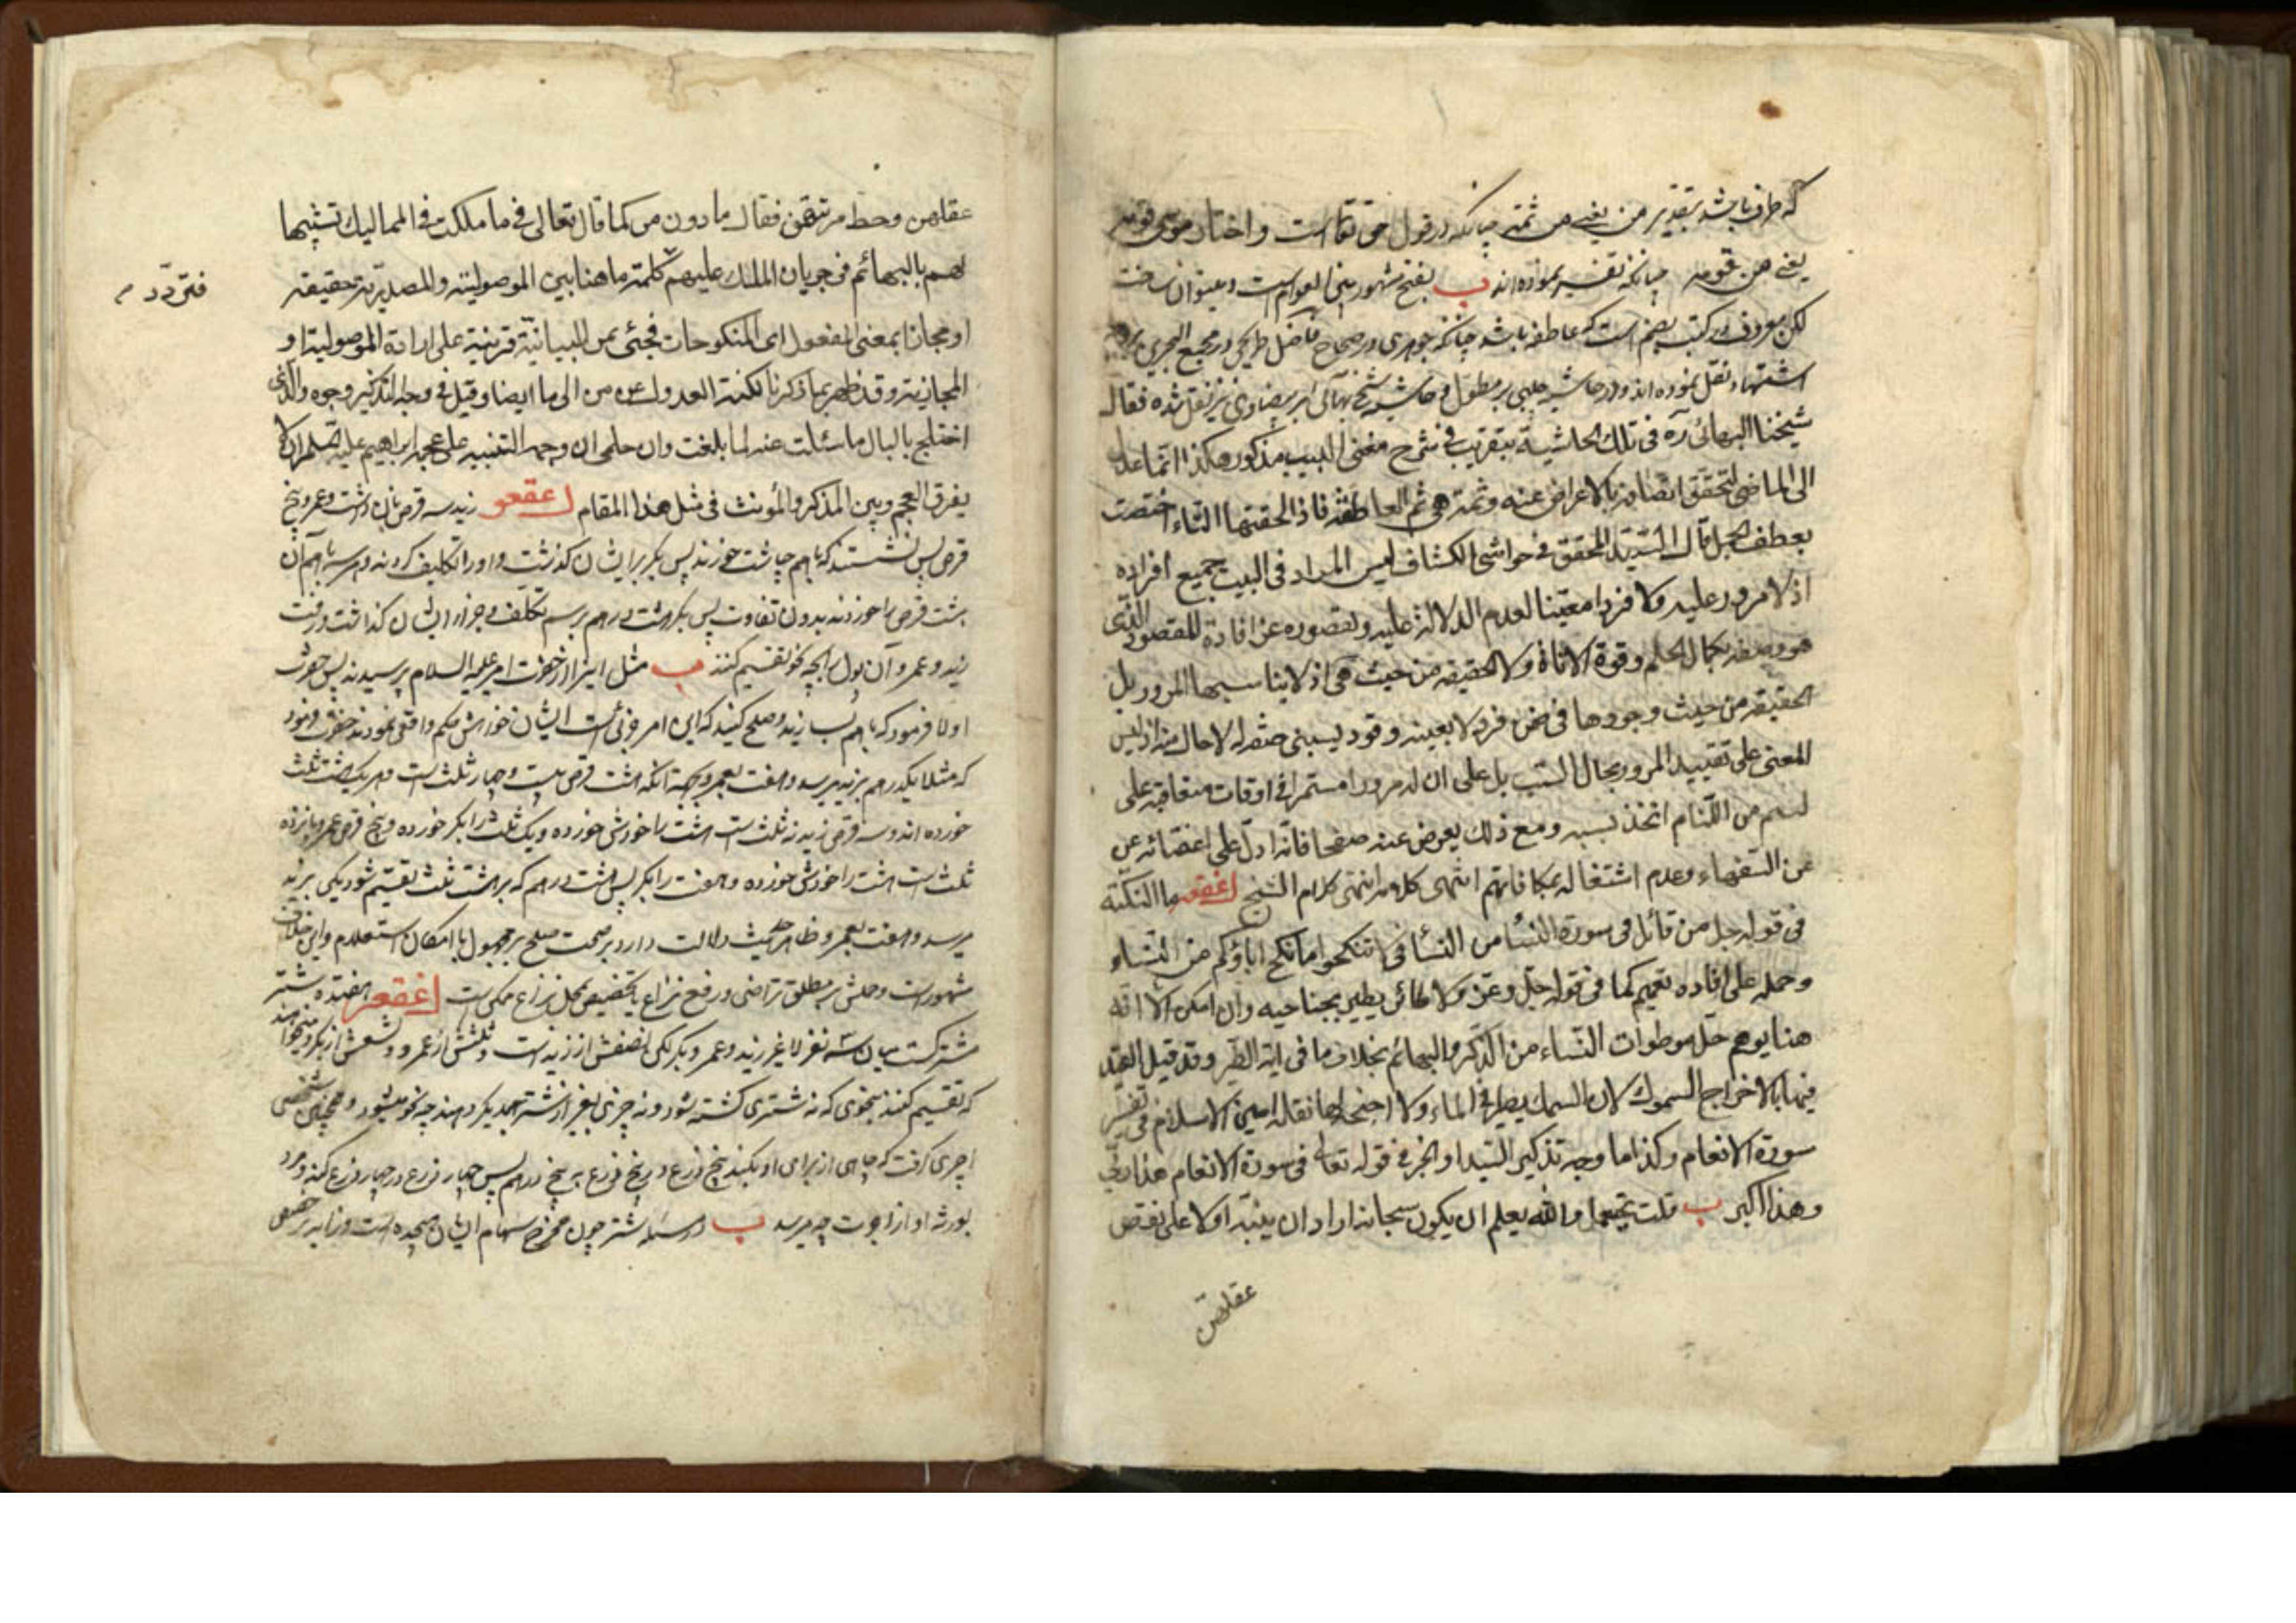 که ظرف باشد بتقدیر من یعنی من ثمة چنانکه در قول حق تعالی است واختار موسی قومه
یعنی من قومه چنانکه تفسیر نموده‌اند ب بفتح مشهور بین العوام است
لکن معروف در کتب بضم است که عاطفه باشد چنانکه جوهری در صحاح و فاضل طریحی در مجمع البحرین
اشتهاد نقل نموده‌اند و در حاشیه چلبی بر مطول و حاشیه شیخ بهائی بر بیضاوی نیز نقل شده فقال
شیخنا البهائی ره فی تلک الحاشیة بتقریب فی شرح مغنی اللبیب مذکور هکذا انما عدل
الی الماضی لتحقق اتصافه بالاعراض عنه وثمة هی ثم العاطفة فاذا لحقتها التاء اختصت
بعطف الجمل قال السید المحقق فی حواشی الکشاف لیس المراد فی البیت جمیع افراده
اذ لا مرور علیه ولا فردا معینا لعدم الدلالة علیه ولقصوره عن افادة المقصود الذی
هو وصفه بکمال الحلم وقوة الاناة ولا الحقیقة من حیث هی اذ لا یناسبها المرور بل
الحقیقة من حیث وجودها فی ضمن فرد لا بعینه وقوله یسبنی صفة له لا حال منه اذ لیس
المعنی علی تقیید المرور بحال السب بل علی ان له مرورا مستمرا فی اوقات متعاقبة علی
لئیم من اللئام اتخذ بسبه ومع ذلک یعرض عنه صفحا فانه ادل علی اغضائه عن
عن السفهاء وعدم اشتغاله بمکافاتهم انتهی کلامه انتهی کلام الشیخ ما النکتة
فی قوله جل من قائل فی سورة النساء من النساء فی لا تنکحوا ما نکح اباؤکم من النساء
وحمله علی افاده تعمیم کما فی قوله جل وعز ولا طائر یطیر بجناحیه وان امکن الا انه
هنا یوهم حل موطوات النساء من الذکر والبهائم بخلاف ما فی ایة الطیر وقد قیل القید
فیها بالاخراج السموک لان السمک یطیر فی الماء ولا اجنحة لها نقله امین الاسلام فی تفسیر
سورة الانعام وکذا ما وجه تذکیر المبتدا والخبر فی قوله تعالی فی سورة الانعام هذا ربی
وهذا اکبر ب قلت یحتمل والله یعلم ان یکون سبحانه اراد ان ینبه اولا علی نقص
عقلهن
عقلهن وحط مرتبتهن فقال ما دون من کما قال تعالی فی ما ملکت فی الممالیک تشبیها
لهم بالبهائم فی جریان الملک علیهم کلمة ما هنا بین الموصولیة والمصدریة حقیقة
فتردد
او مجازا بمعنی المفعول ای المنکوحات فجئ بمن البیانیة قرینة علی ارادة الموصولیة او
المجازیة وقد ظهر بما ذکرنا نکتة العدول عن من الی ما ایضا وقیل فی وجه التذکیر وجوه والذی
اختلج بالبال ما سئلت عنه لما بلغت وان حلمی ان وجه التنبیه علی عجمة ابراهیم علیه السلام ان لا
یفرق العجم وبین المذکر والمؤنث فی مثل هذا المقام زید سه قرص نان داشت وعمرو پنج
قرص پس نشستند که باهم چاشت خورند پس بکر بر ایشان گذشت و او را تکلیف کردند و هر سه باهم آن
هشت قرص را خوردند بدون تفاوت پس بکر هشت درهم برسم تکلف و جزا به ایشان گذاشت و رفت
زید و عمرو آن پول را بچه نحو تقسیم کنند ب مثل این را از حضرت امیر علیه السلام پرسیدند پس حضرت
اولا فرمود که باهم بسازید و صلح کنید که این امر جزئی است ایشان خواهش حکم واقعی نمودند حضرت فرمود
که مثلا یکدرهم بزید میرسد و هفت بعمرو بجهة انکه هشت قرص بیست و چهار ثلث است و هر یک هشت ثلث
خورده‌اند و سه قرص زید نه ثلث است هشت را خودش خورده و یک ثلث را بکر خورده و پنج قرص عمرو پانزده
ثلث است هشت را خودش خورده و هفت را بکر پس هشت درهم که بر هشت ثلث تقسیم شود یکی بزید
میرسد و هفت بعمرو و ظاهر حدیث دلالت دارد بر صحت صلح بر مجهول با امکان استعلام و این خلاف
مشهور است و حملش بر مطلق تراضی و رفع نزاع یا تخصیص بمحل نزاع ممکن است هفتده شتر
مشترکست میان سه نفر لا غیر زید و عمرو و بکر لکن نصفش از زید است و ثلثش از عمرو و تسعش از بکر و میخواهند
که تقسیم کنند بنحوی که نه شتری کشته شود و نه چیزی بغیر از شتر بهمدیگر دهند چه نحو میشود و همچنین شخصی
اجیری گرفت که چاهی از برای او بکند پنج ذرع در پنج ذرع به پنج درهم پس چهار ذرع در چهار ذرع کند و مرد
بورثه او از اجرت چه میرسد ب در مسئله شتر چون مخرج سهام ایشان هیجده است